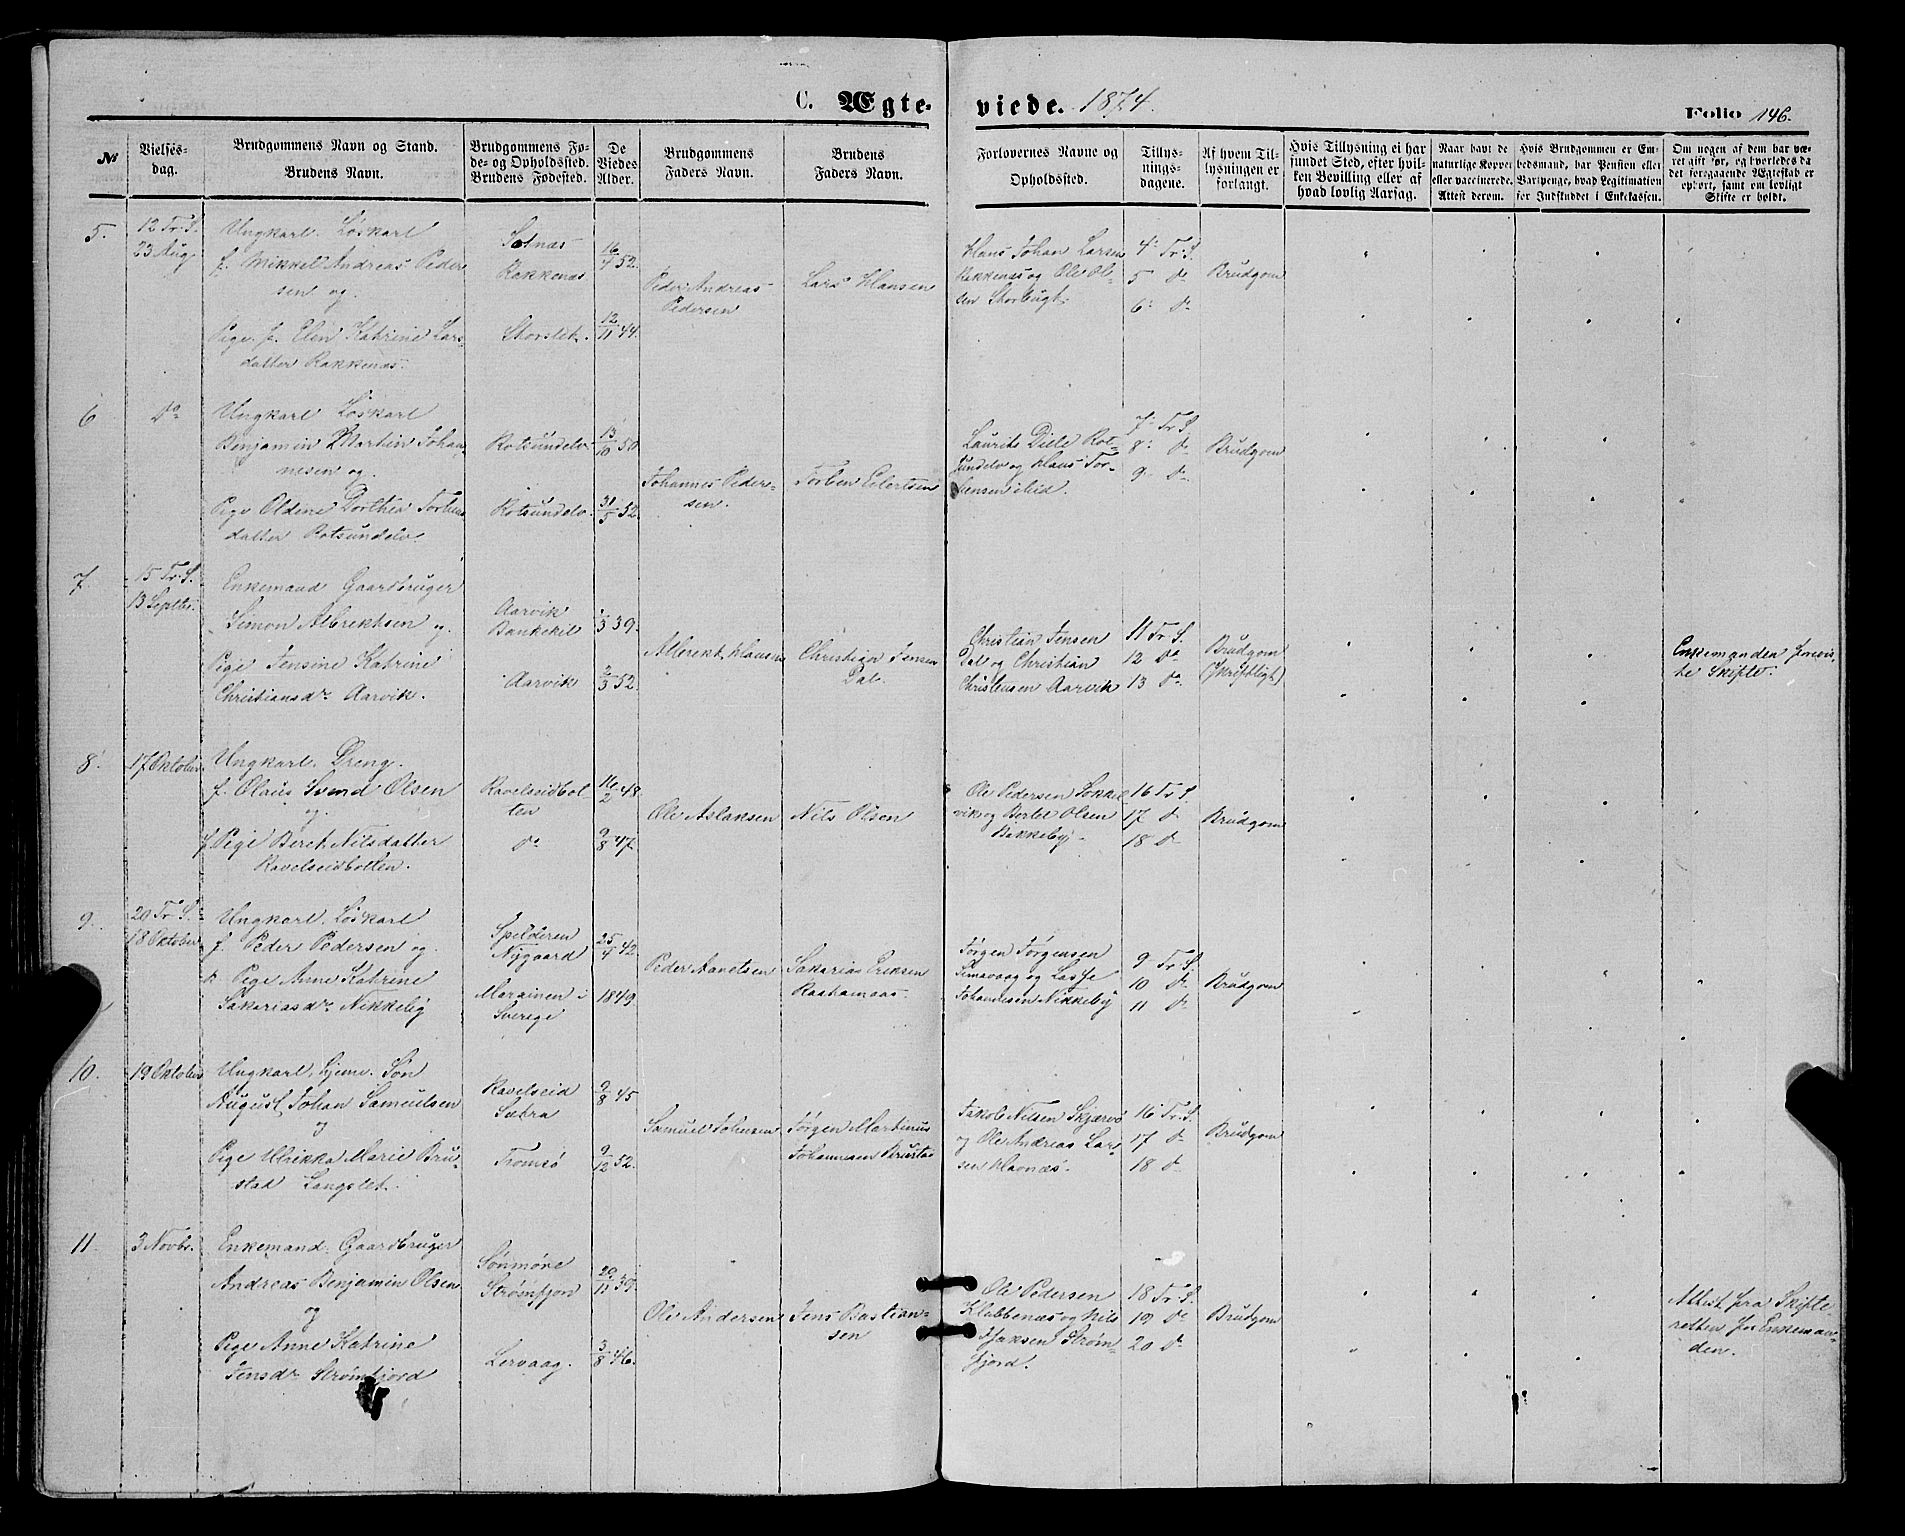 C. Ægte-
viede. 1874.
Folio 146.
№
Vielses-
dag.
Brudgommens Navn og Stand.
Brudens Navn.
Brudgommens Fø-
de- og Opholdssted.
Brudens Fødested.
De
Viedes
Alder.
Brudgommens
Faders Navn.
Brudens
Faders Navn.
Forlovernes Navne og
Opholdssted.
Tillys-
nings-
dagene.
Af hvem Til-
lysningen er
forlangt.
Hvis Tillysning ei har
fundet Sted, efter hvil-
ken Bevilling eller af
hvad lovlig Aarsag.
Naar havt de
naturlige Kopper
eller vaccinerede.
Attest derom.
Hvis Brudgommen er Em-
bedsmand, har Pension eller
Vartpenge, hvad Legitimation
for Indskuddet i Enkekassen.
Om nogen af dem har væ-
ret gift før, og hvorledes da
det foregaaende Ægteskab er
ophørt, samt om lovligt
Skifte er holdt.
5.
12 Tr. S.
23 Aug.
Ungkarl. Løskarl
f. Mikkel Andreas Peder
sen og
Pige. f. Elen Katrine Lars-
datter Rakkenæs.
Solnæs
Rakkenæs
Storslet.
16/4 52.
12/11 44.
Peder Andreas
Pedersen
Lars Hansen
Hans Johan Larsen
Rakkenæs og Ole Ol-
sen Storbugt.
4: Tr. S.
5 do
6: do
Brudgom
6
do
Ungkarl Løskarl
Benjamin Martin Johan-
nesen og
Pige Oldine Dorthea Torbens
datter Rotsundelv.
Rotsundelv
Rotsundelv.
13/10 50
31/5 52.
Johannes Peder-
sen.
Torben Eilertsen
Laurits Dille Rot-
sundelv og Hans Tor-
bensen ibid.
7: Tr. S.
8: do
9 do
Brudgom
7
15 Tr. S.
13 Septbr.
Enkemand Gaardbruger
Simon Albrektsen og
Pige Jensine Katrine
Christiansdr Aarvik.
Aarvik
Bankekil
Aarvik
39.
2/3 52.
Albrekt Hansen
Christian Jensen
Dal.
Christian Jensen
Dal og Christian
Christensen Aarvik
11 Tr. S.
12 do
13 do
Brudgom
(skriftligt)
Enkemanden forevis
te Skifte.
8.
17 Oktober
Ungkarl. Dreng.
f. Olaus Svend Olsen
og
f. Pige Beret Nilsdatter
Ravelseidbotten.
Ravelseidbot-
ten
do
16/2 48.
9/8 47.
Ole Aslaksen
Nils Olsen
Ole Pedersen Løkkel
vik og Bertel Olsen
Bakkeby.
16 Tr. S.
17 do
18 do
Brudgom
9.
20 Tr. S.
18 Oktober
Ungkarl. Løskarl
f. Peder Pedersen og
k Pige Anne Katrine
Sakariasdr Nikkeby
Spilderen
Nygaard
Marainen i
Sverige
25/4 42
1849.
Peder Aanetsen
Sakarias Eriksen
Raahamaas.
Jørgen Jørgensen
Simavaag og Lasse
Johannesen Nikkeby
9 Tr. S.
10 do
11 do
Brudgom
10.
19 Oktober
Ungkarl, hjem. Søn
August Johan Samuelsen
og
Pige Ulrikka Marie Bru-
stad Langslet.
Ravelseid
Sætra
Tromsø
9/8 45
9/12 52.
Samuel Johnsen
Jørgen Martinus
Johannsen Brustad
Jakob Nilsen Skjærvø
og Ole Andreas Lar-
sen Havnæs.
16 Tr. S.
17 do
18 do
Brudgom
11.
3 Novbr.
Enkemand. Gaardbruger
Andreas Benjamin Olsen
og
Pige Anne Katrine
Jensdr Strømfjord
Sønmøre
Strømfjord
Lervaag.
29/11 39.
3/8 46.
Ole Andersen
Jens Bastian-
sen
Ole Pedersen
Klubbenæs og Nils
Isaksen Strøm-
fjord.
18 Tr. S.
19 do
20 do
Brudgom
Attest fra Skifte-
retten for Enkeman-
den.